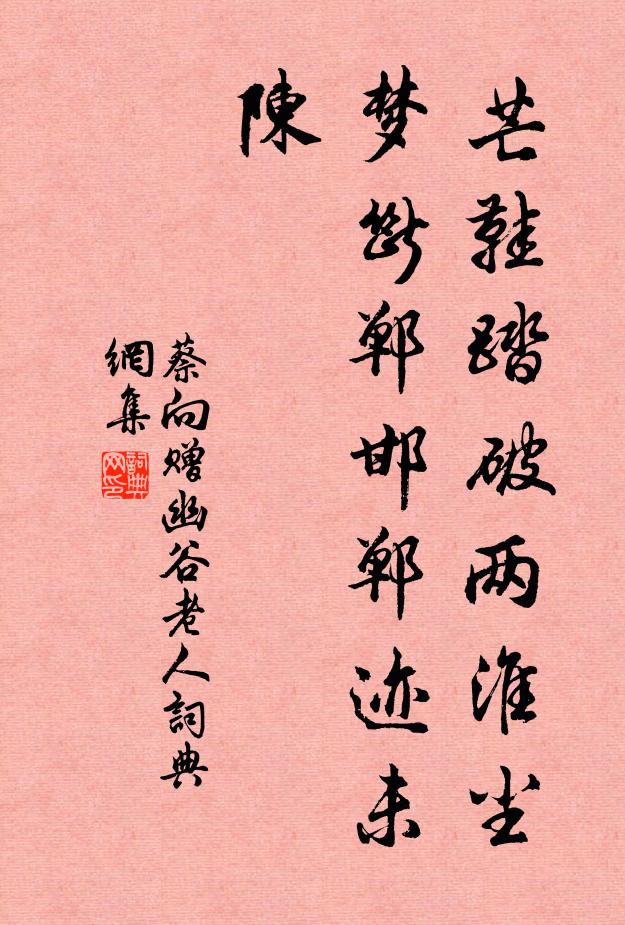 芒鞋踏破两淮尘
梦断郸邯郸迹未
陳
蔡向赠幽谷老人詞典
網集
詞典
网印